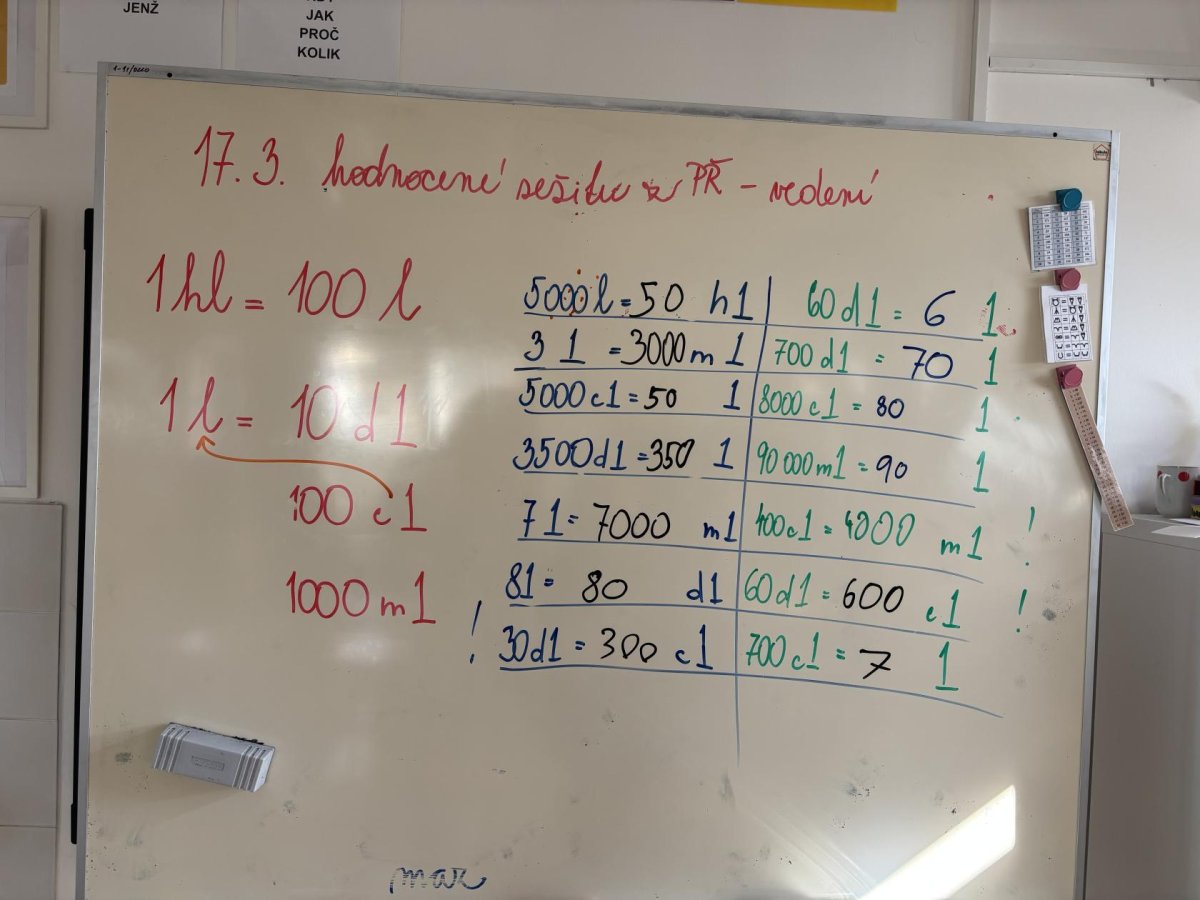 JENŽ
JAK
PROČ
KOLIK
17.3. hodnocení sešitu z PŘ - vedení
1 hl = 100 l
1 l = 10 dl
100 cl
1000 ml
5000 l = 50 hl
3 l = 3000 ml
5000 cl = 50 l
3500 dl = 350 l
7 l = 7000 ml
8 l = 80 dl
! 30 dl = 300 cl
60 dl = 6 l
700 dl = 70 l
8000 cl = 80 l
90 000 ml = 90 l
400 cl = 4000 ml !
60 dl = 600 cl !
700 cl = 7 l
maz